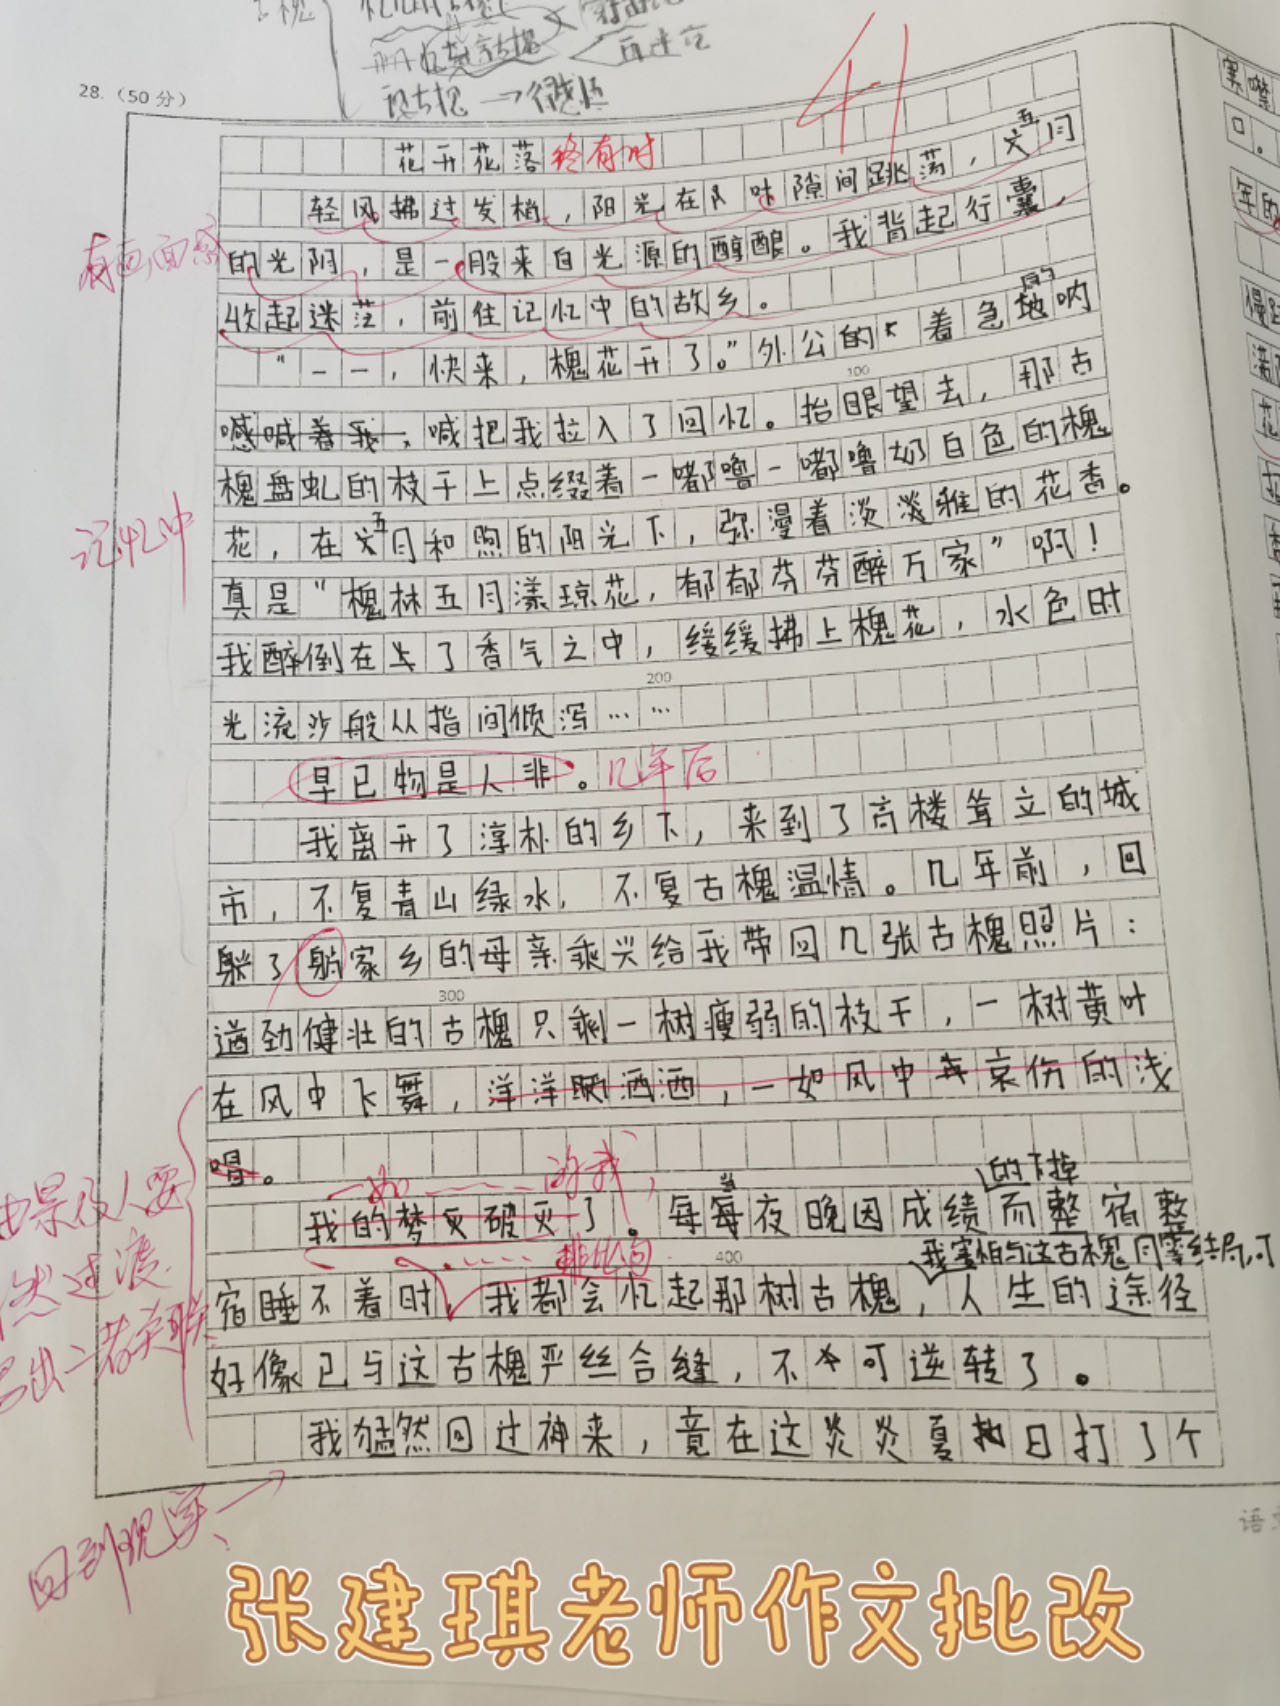 古槐
再述花
28.（50分）
41
花开花落终有时
轻风拂过发梢，阳光在隙间跳荡，五月
有画面感
的光阴，是一股来自光源的醇酿。我背起行囊，
收起迷茫，前往记忆中的故乡。
“一一，快来，槐花开了。”外公的着急的呐
100
喊喊着我，喊把我拉入了回忆。抬眼望去，那古
槐盘虬的枝干上点缀着一嘟噜一嘟噜奶白色的槐
记忆中
花，在五月和煦的阳光下，弥漫着淡淡雅的花香。
真是“槐林五月漾琼花，郁郁芬芬醉万家”啊！
我醉倒在了香气之中，缓缓拂上槐花，水色时
200
光流沙般从指间倾泻……
早已物是人非。几年后
我离开了淳朴的乡下，来到了高楼耸立的城
市，不复青山绿水，不复古槐温情。几年前，回
躺了躺家乡的母亲乘兴给我带回几张古槐照片：
300
遒劲健壮的古槐只剩一树瘦弱的枝干，一树黄叶
在风中飞舞，洋洋洒洒，一如风中哀伤的浅
唱。
由景及人要
自然过渡
写出二者关联
一如……的我，
的下掉
我的梦灭破灭了。每每当夜晚因成绩而整宿整
……排比句
400
我害怕与这古槐同零结局，可
宿睡不着时，我都会忆起那树古槐，人生的途径
好像已与这古槐严丝合缝，不可逆转了。
我猛然回过神来，竟在这炎炎夏日打了个
回到现实
语文
张建琪老师作文批改